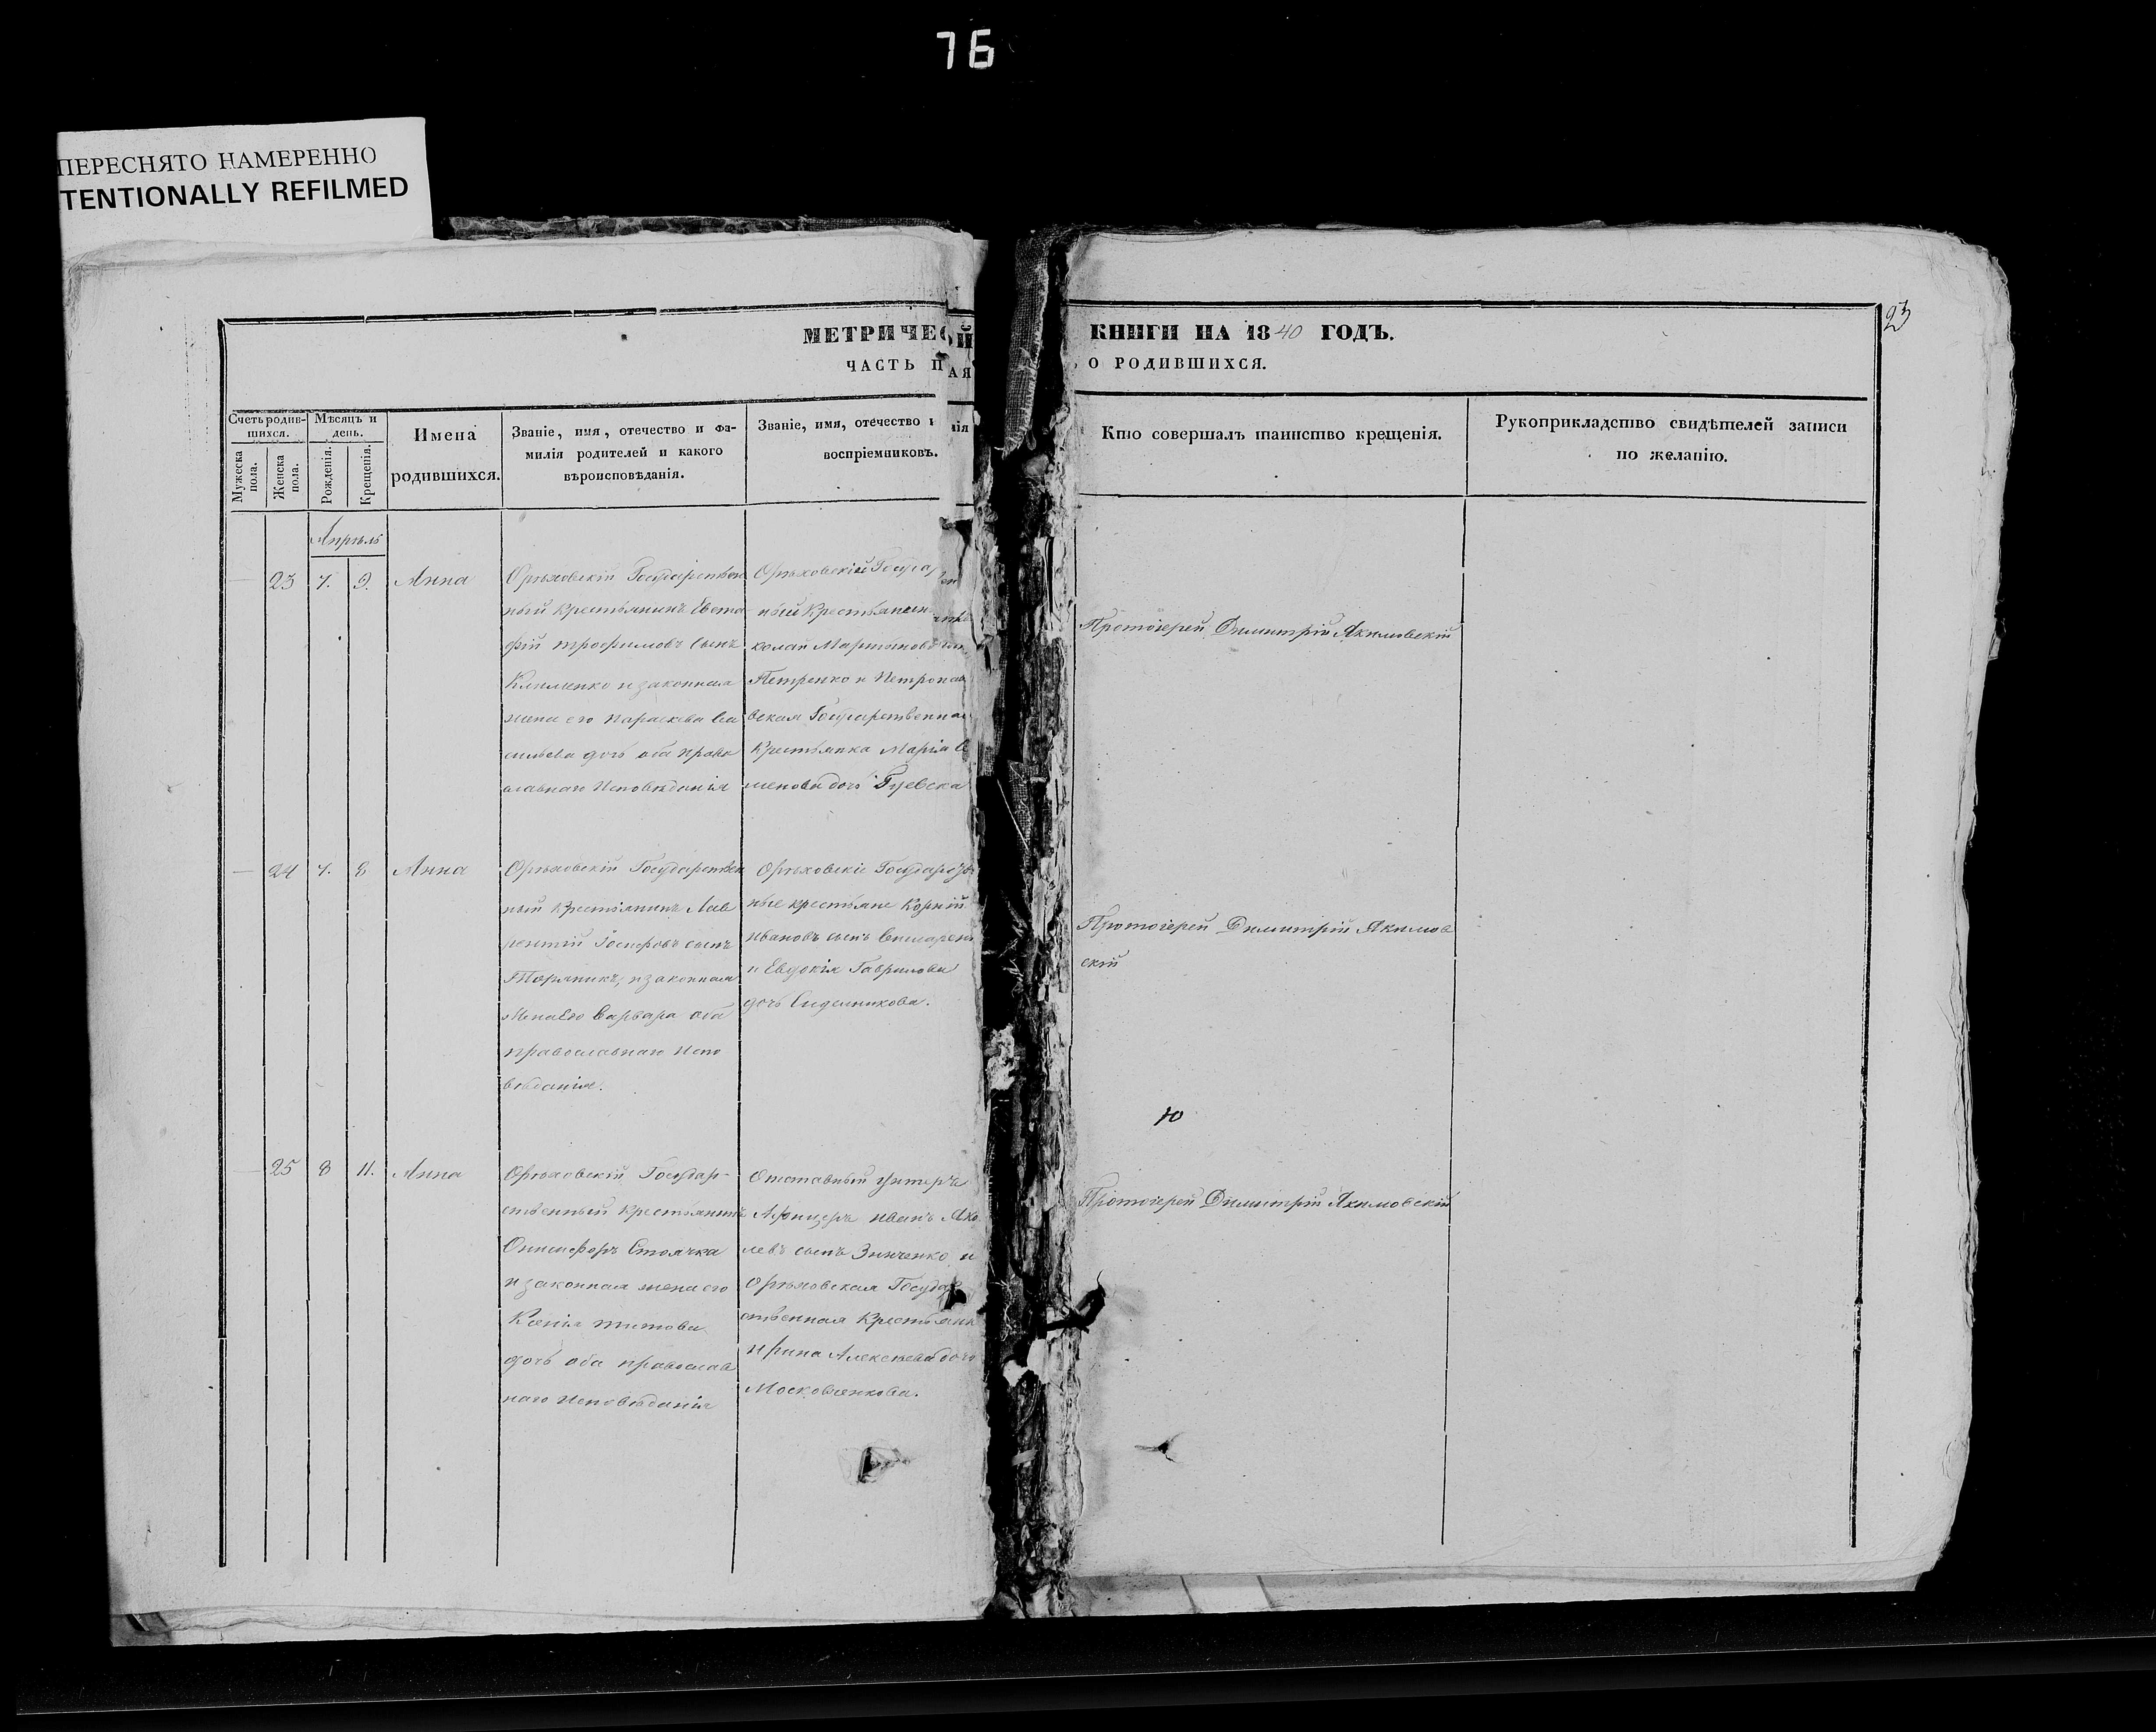 76
ПЕРЕСНЯТО НАМЕРЕННО
TENTIONALLY REFILMED
23
МЕТРИЧЕС ОЙ КНИГИ НА 1840 ГОДЪ.
ЧАСТЬ П АЯ, О РОДИВШИХСЯ.
Счетъ родив-
шихся.
Мужеска пола.
Женска пола.
Мѣсяцъ и
день.
Рожденія.
Крещенія.
Имена
родившихся.
Званіе, имя, отечество и фа-
милія родителей и какого
вѣроисповѣданія.
Званіе, имя, отечество
воспріемниковъ.
Кто совершалъ таинство крещенія.
Рукоприкладство свидѣтелей записи
по желанію.
Апрѣль
23 7. 9. Анна
Орѣховскій Государствен
ный крестьянинъ Евста
фій трофимовъ сынъ
Клименко и законная
жена его параскева Ва
сильева дочь оба право
славнаго Исповѣданія
Орѣховскій Госуда
ный Крестьянин
колай Мартыновъ
Петренко и Петропав
вская Государственная
Крестьянка Марія С
менова дочь
Протоіерей Димитрій Якимовскій
24 7. 8 Анна
Орѣховскій Государствен
ный крестьянинъ Лав
рентій Іосифовъ сынъ
и законная
жена Его Варвара оба
православнаго Испо
вѣданія.
Орѣховскіе Государств
ные крестьяне Корній
ивановъ сынъ
и Евдокія Гаврилова
дочь Сиделникова.
Протоіерей Димитрій Якимов
скій
10
25 8 11. Анна
Орѣховскій Государ-
ственный крестьянинъ
Онисифоръ Стоячка
и законная жена его
Ксенія титова
дочь оба православ
наго Исповѣданія
Отставный унтеръ
Афицеръ иванъ Яко
левъ сынъ Зинченко и
Орѣховская Государ
ственная Крестьянк
ирина Алексѣева дочь
Московченкова.
Протоіерей Димитрій Якимовскій